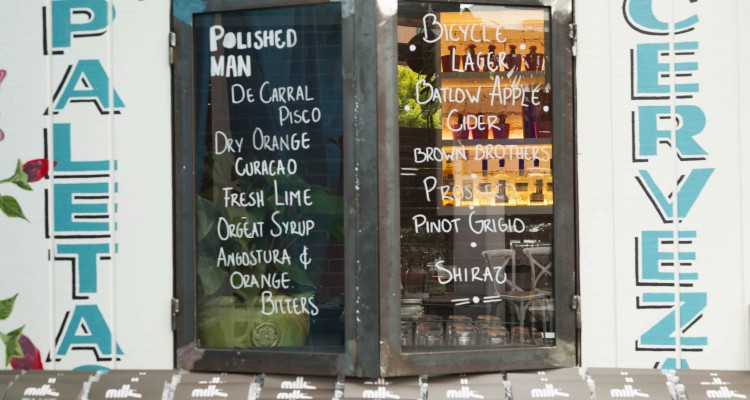 PALETA
POLISHED
MAN
DE CARRAL
PISCO
DRY ORANGE
CURACAO
FRESH LIME
ORGEAT SYRUP
ANGOSTURA &
ORANGE
BITTERS
BICYCLE
LAGER
BATLOW APPLE
CIDER
BROWN BROTHERS
PROSECCO
PINOT GRIGIO
SHIRAZ
CERVEZ
milk
milk
milk
milk
milk
milk
milk
milk